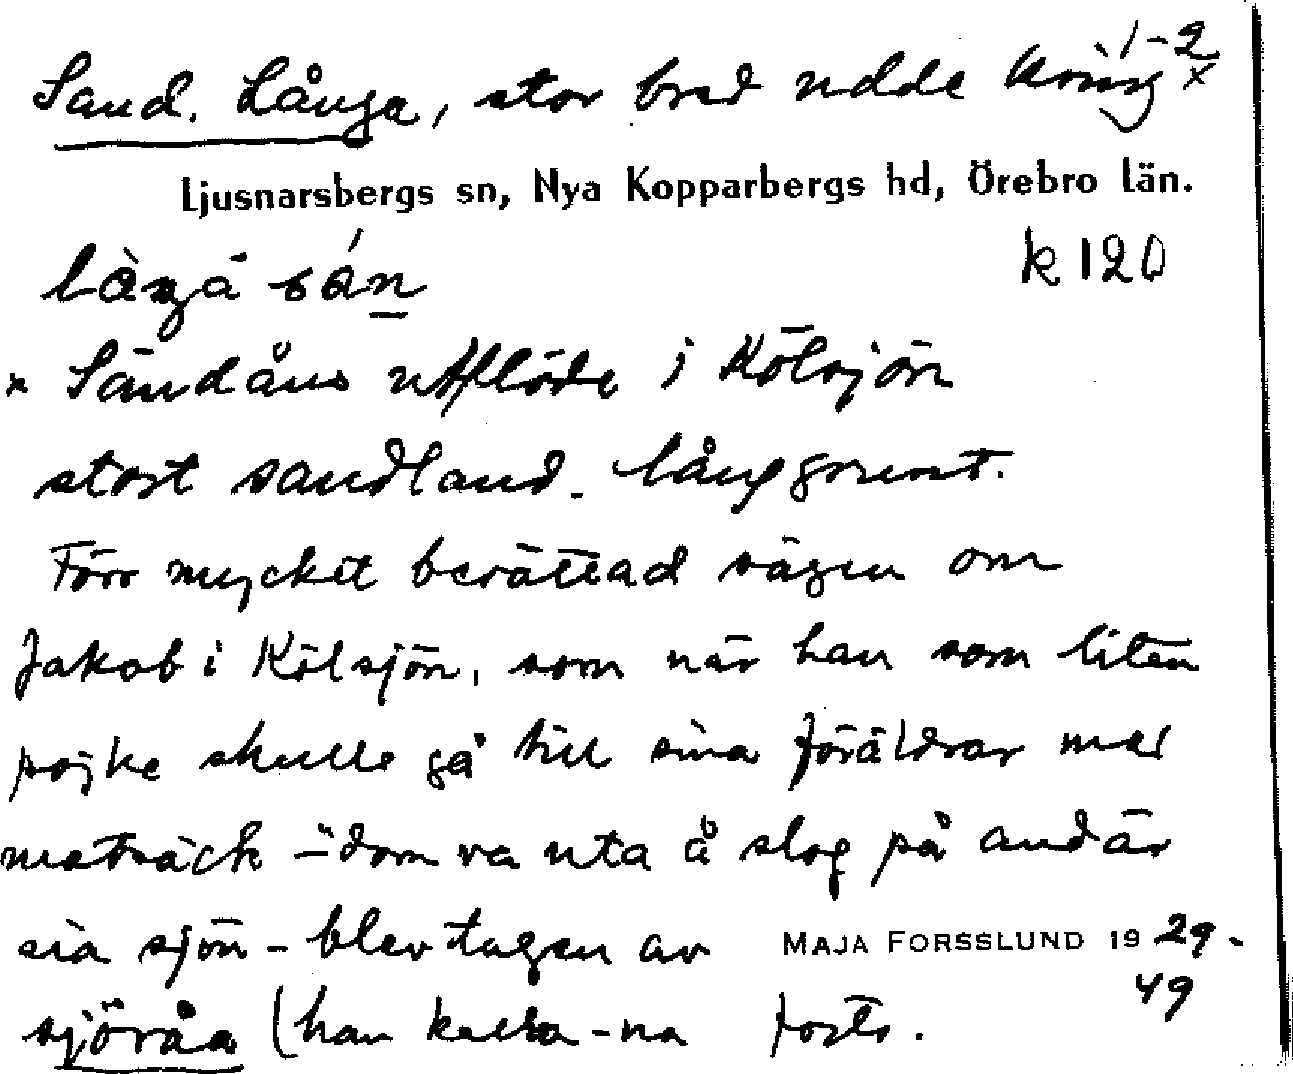 1-2
Sand. Långa, stor bred udde kring x
Ljusnarsbergs sn, Nya Kopparbergs hd, Örebro län.
làŋa sán k 120
x Sandåns utflöde i Kölsjön
stort sandland. långgrunt.
Förr mycket berättad sägen om
Jakob i Kölsjön, som när han som liten
pojke skulle gå till sina föräldrar med
matsäck - dom va uta å slog på andär
sia sjön - blev tagen av
MAJA FORSSLUND 1929-
49
sjöråa (han kalla-na forts.